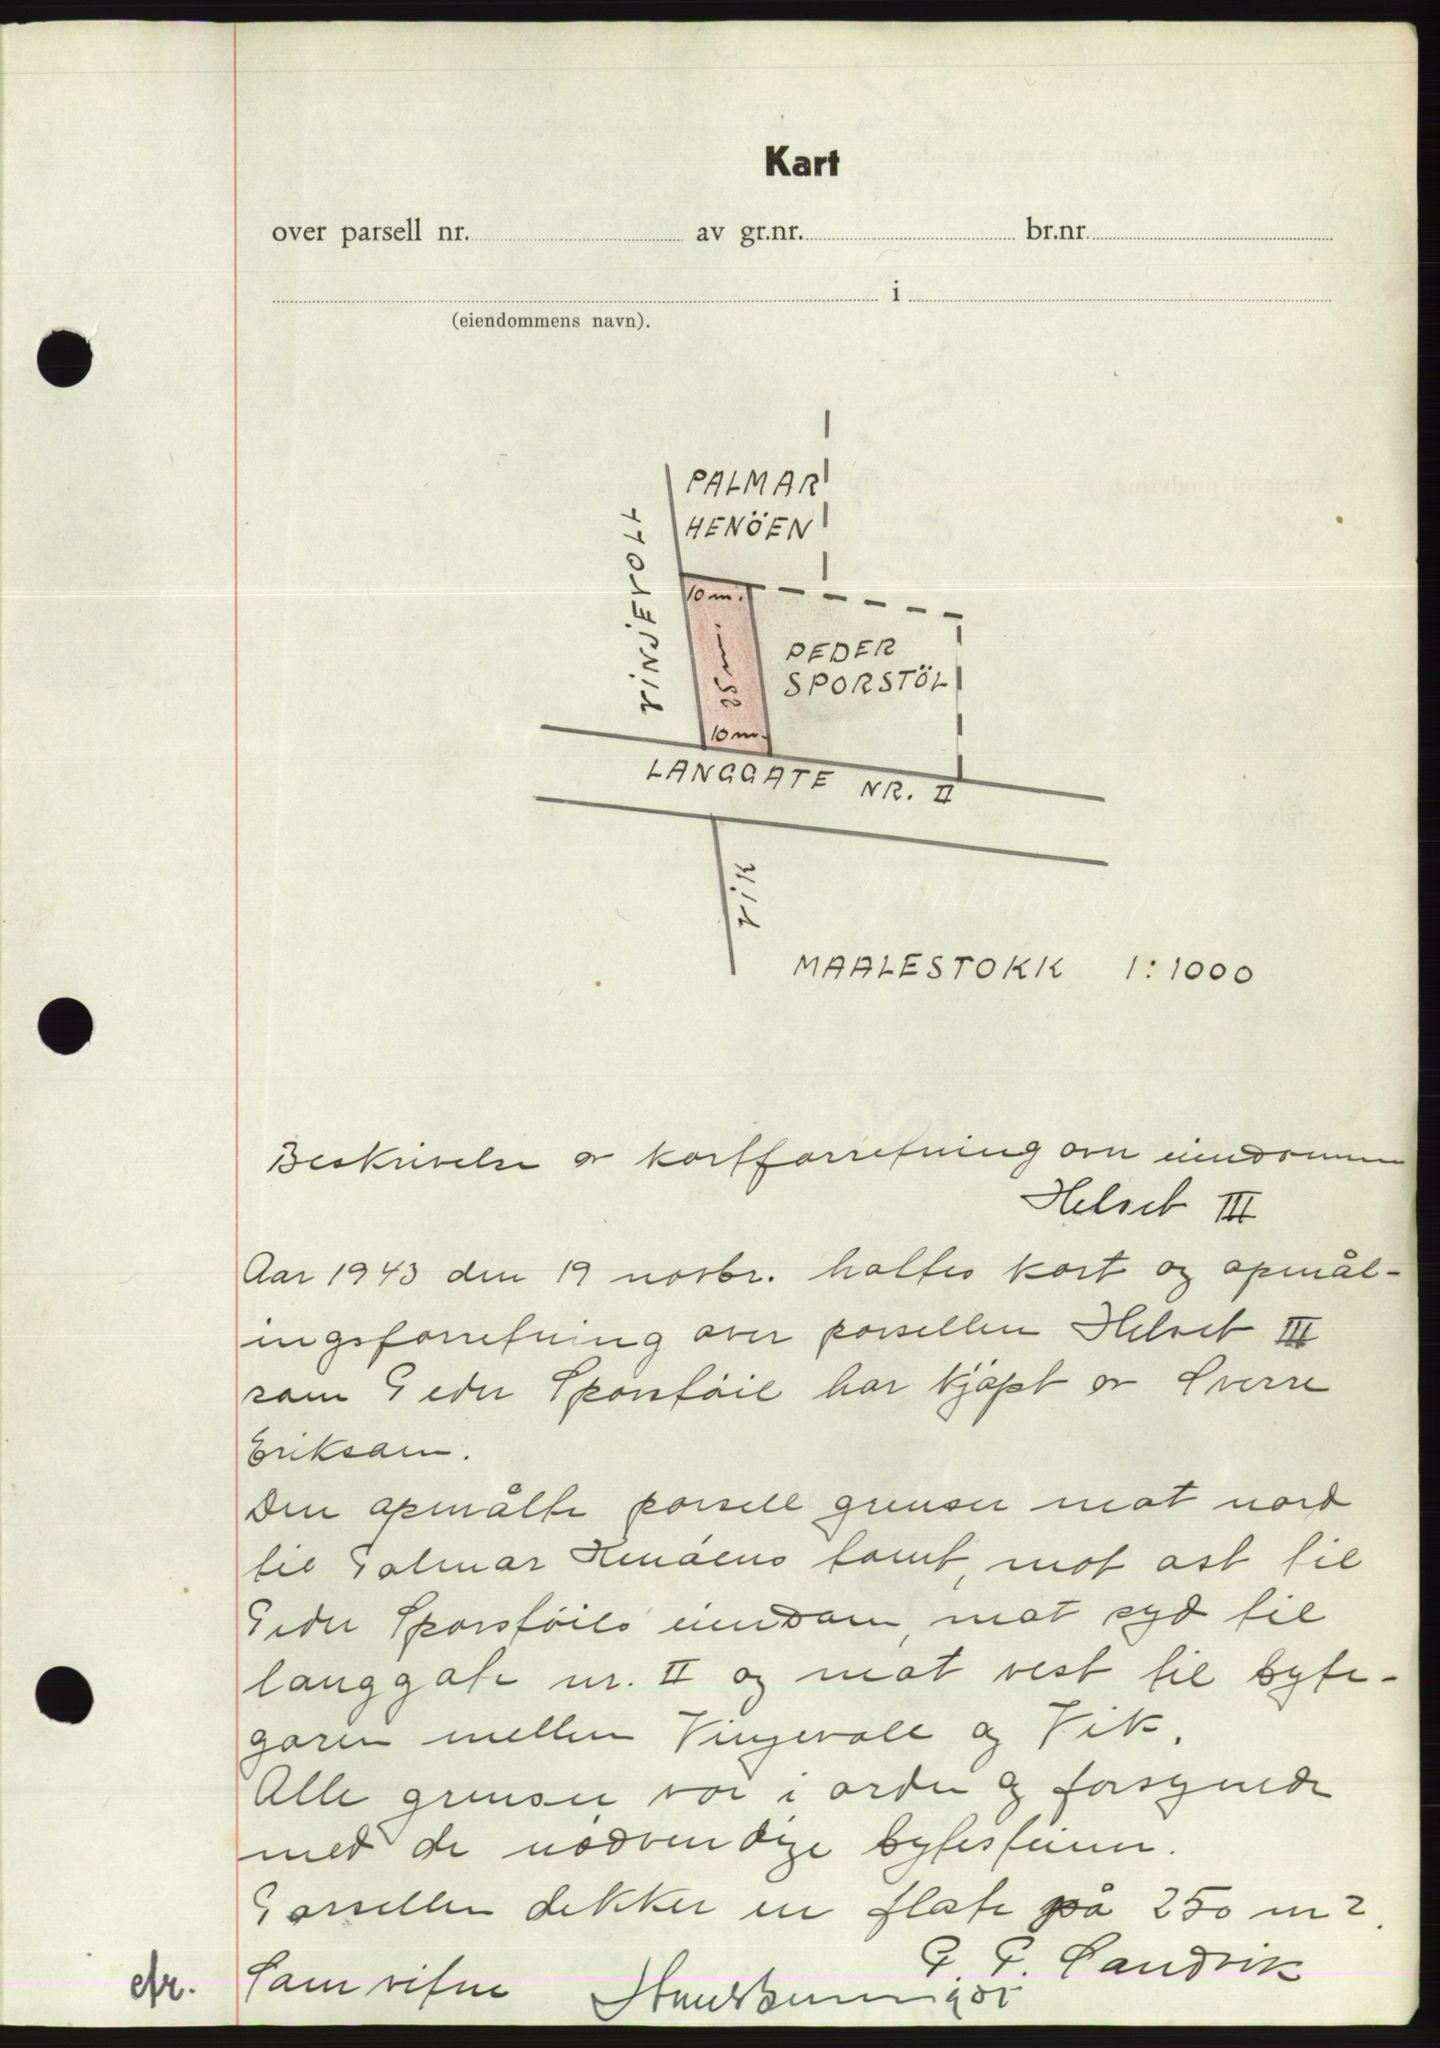 Kart
over parsell nr. av gr.nr. br.nr.
i
(eiendommens navn).
PALMAR
HENÖEN
VINJEVOLL
10 m.
25 m.
PEDER
SPORSTÖL
10 m.
LANGGATE NR. II
VIK
MAALESTOKK 1:1000
Beskrivelse av kartforretning over eiendommen
Helset III
Aar 1943 den 19 novbr. holtes kart og opmål-
ingsforretning over parsellen Helset III
som Peder Sporstöil har kjöpt av Sverre
Eriksen.
Den opmålte parsell grenser mot nord
til Palmar Henöens tomt, mot ost til
Peder Sporstöils eiendom, mot syd til
langgate nr. II og mot vest til byte-
garen mellem Vinjevoll og Vik.
Alle grenser var i orden og forsynede
med de nödvendige bytesteiner.
Parsellen dekker en flate på 250 m2.
P. P. Sandvik
cfr. Som vitne